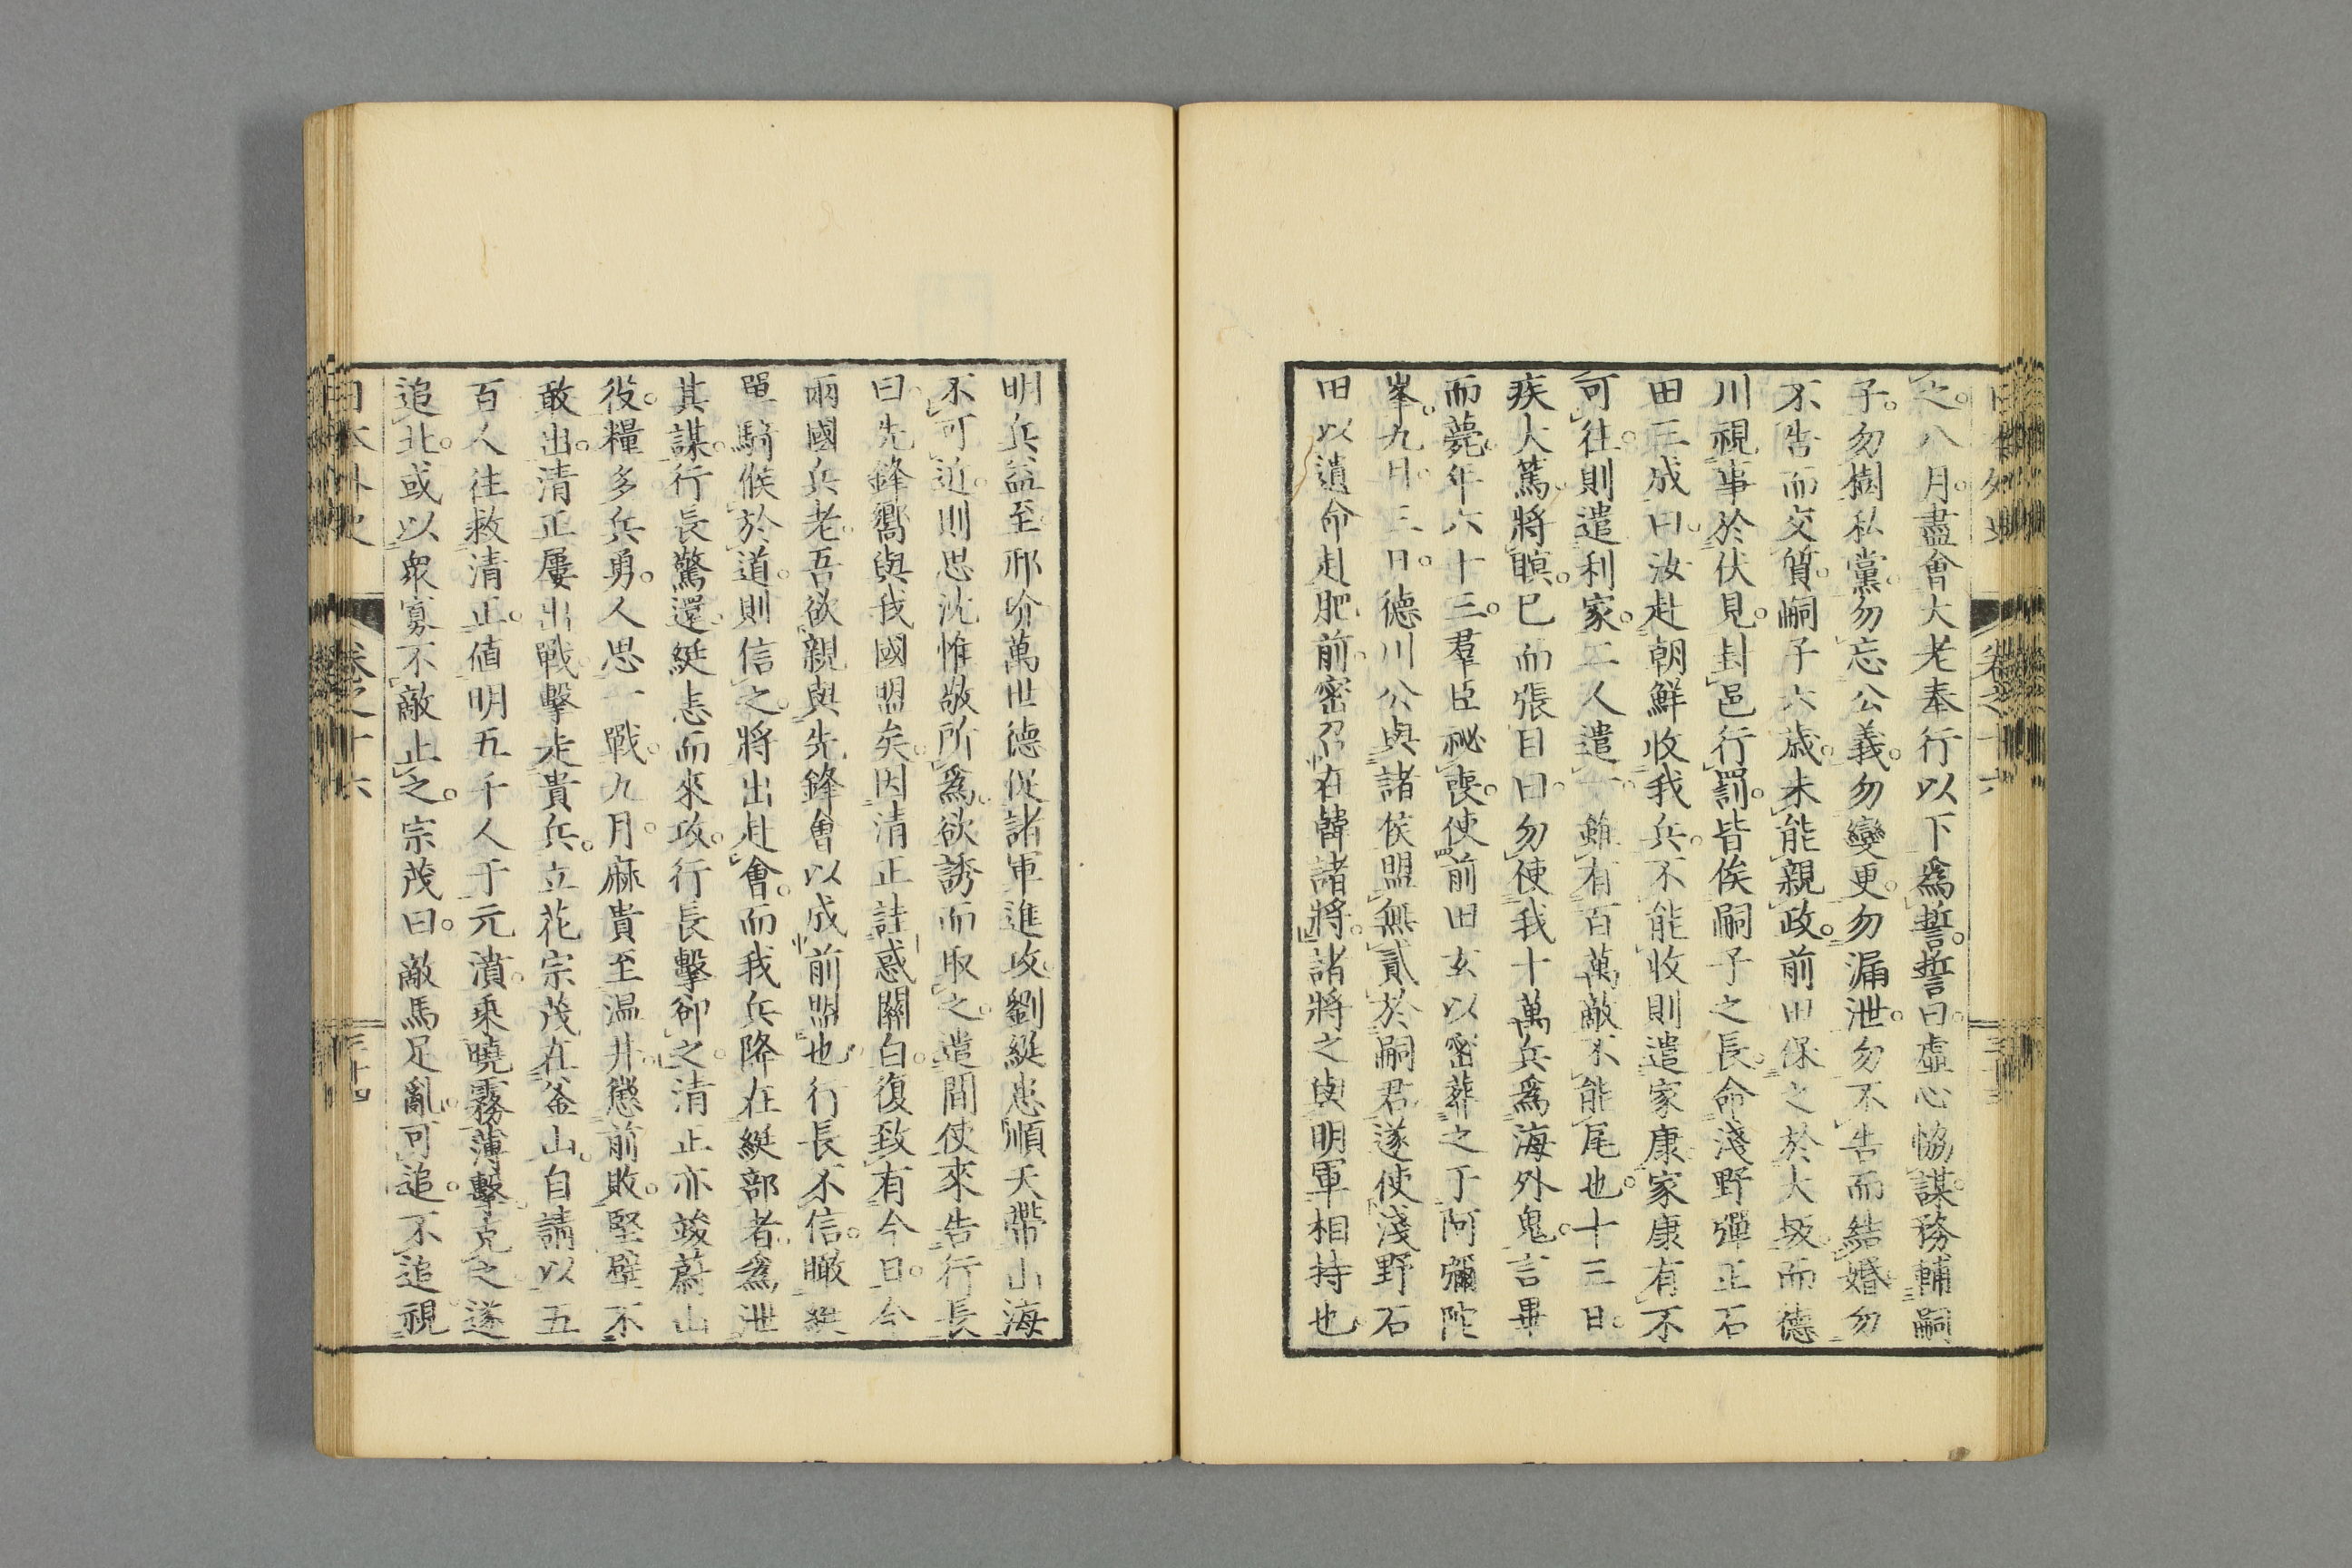 之。八月。盡會大老奉行以下爲誓。誓曰。虛心恊謀。務輔嗣
子。勿樹私黨。勿忘公義。勿變更。勿漏泄。勿不告而結婚。勿
不告而交質。嗣子六歲。未能親政。前田保之於大坂。而德
川視事於伏見。封邑行罰。皆俟嗣子之長。命淺野彈正石
田三成曰。汝赴朝鮮收我兵。不能收則遣家康。家康有不
可往。則遣利家。二人遣一。雖有百萬敵。不能尾也。十三日。
疾大篤。將瞑。已而張目曰。勿使我十萬兵爲海外鬼。言畢
而薨。年六十三。羣臣祕喪。使前田玄以密葬之于阿彌陀
峯。九月。三日。德川公與諸侯盟無貳於嗣君。遂使淺野石
田以遺命赴肥前。密召在韓諸將。諸將之與明軍相持也。
明兵益至。邢玠萬世德促諸軍進攻。劉綎患順天帶山海
不可近。則思沈惟敬所爲。欲誘而取之。遣間使來告行長
曰。先鋒嚮與我國盟矣。因清正詿惑關白。復致有今日。今
兩國兵老。吾欲親與先鋒會以成前盟也。行長不信。瞰綎
單騎候於道。則信之。將出赴會。而我兵降在綎部者。爲泄
其謀。行長驚還。綎恚而來攻。行長擊卻之。清正亦竣蔚山
役。糧多兵勇。人思一戰。九月。麻貴至温井。懲前敗。堅壁不
敢出。清正屢出戰。擊走貴兵。立花宗茂在釜山。自請以五
百人往救清正。値明五千人于元濆。乘曉霧薄擊。克之。遂
追北。或以衆寡不敵止之。宗茂曰。敵馬足亂。可追。不追視
日本外史
卷之十六
三十四